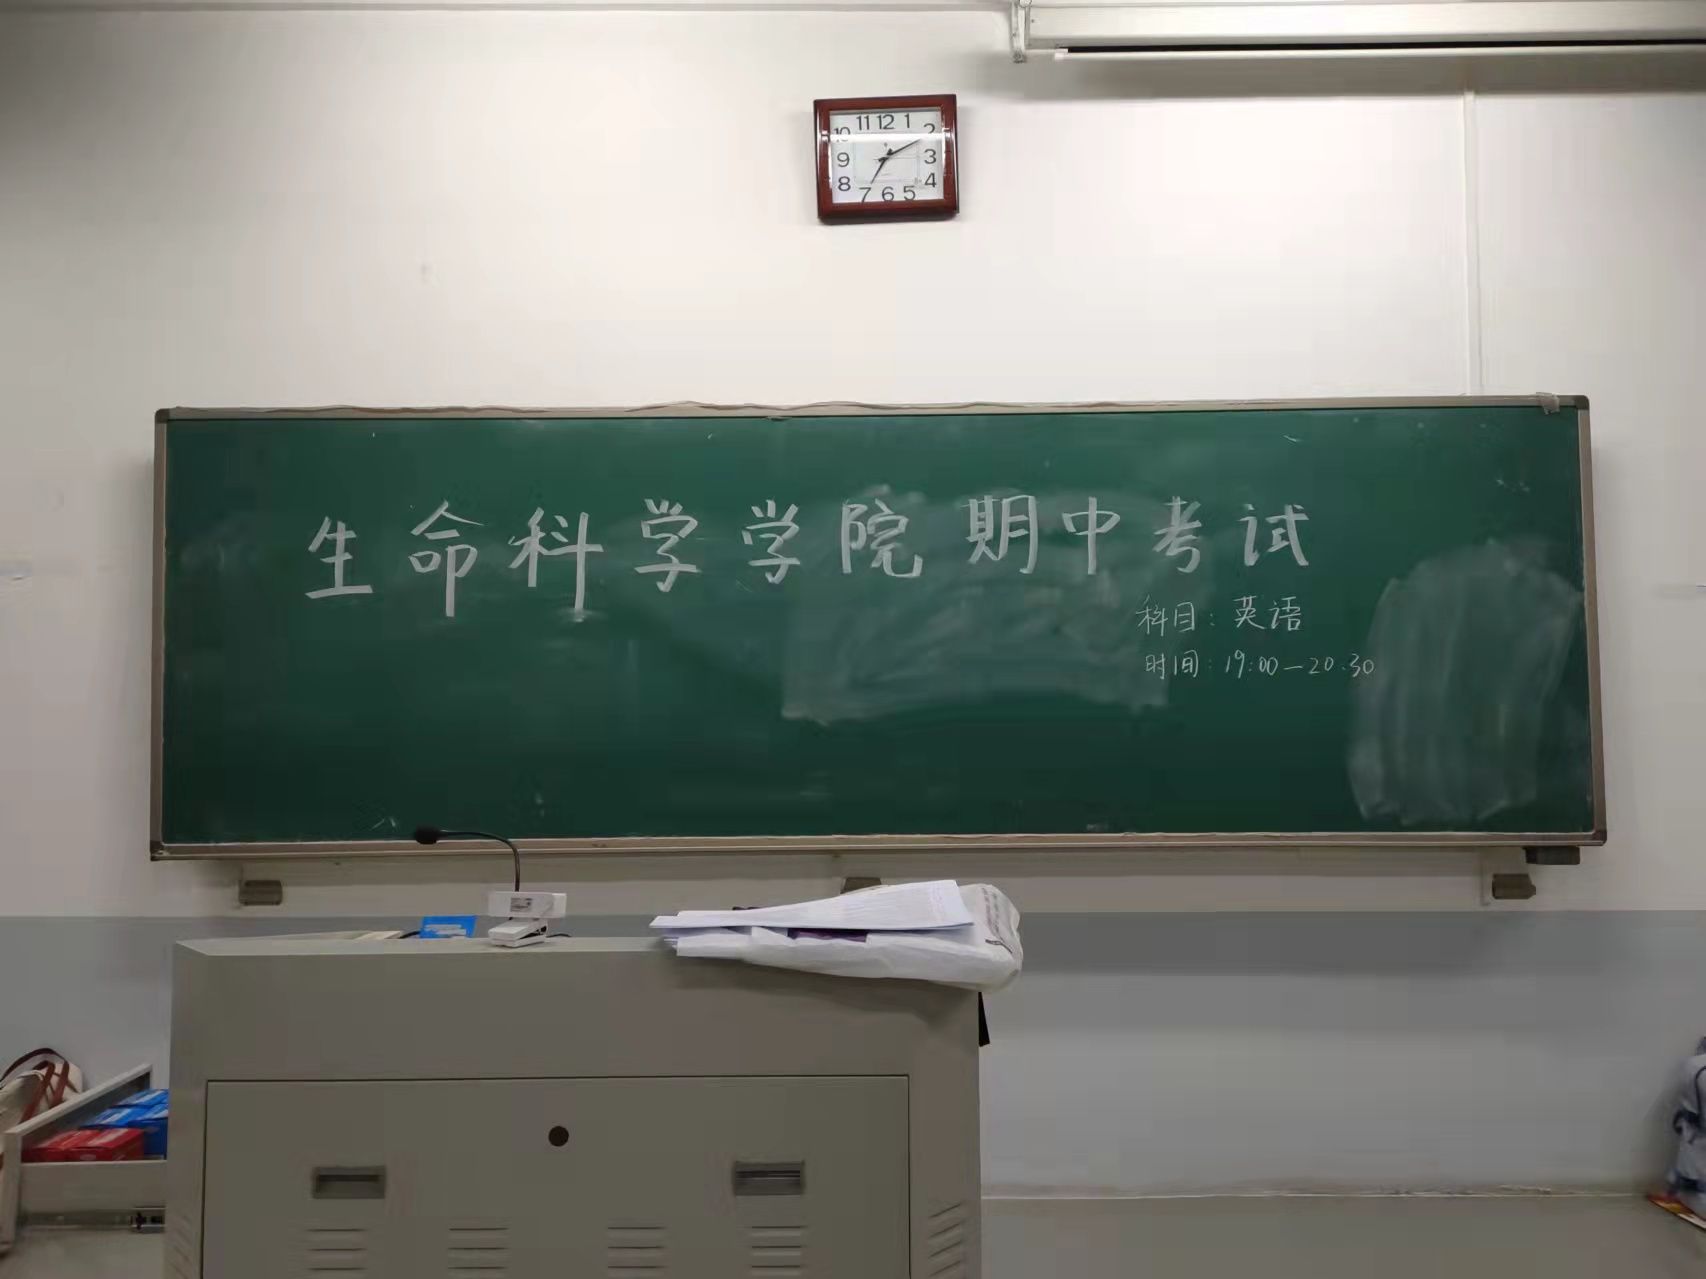 11 12 1
10 2
9 3
8 4
7 6 5
生命科学学院 期中考试
科目：英语
时间：19:00—20:30